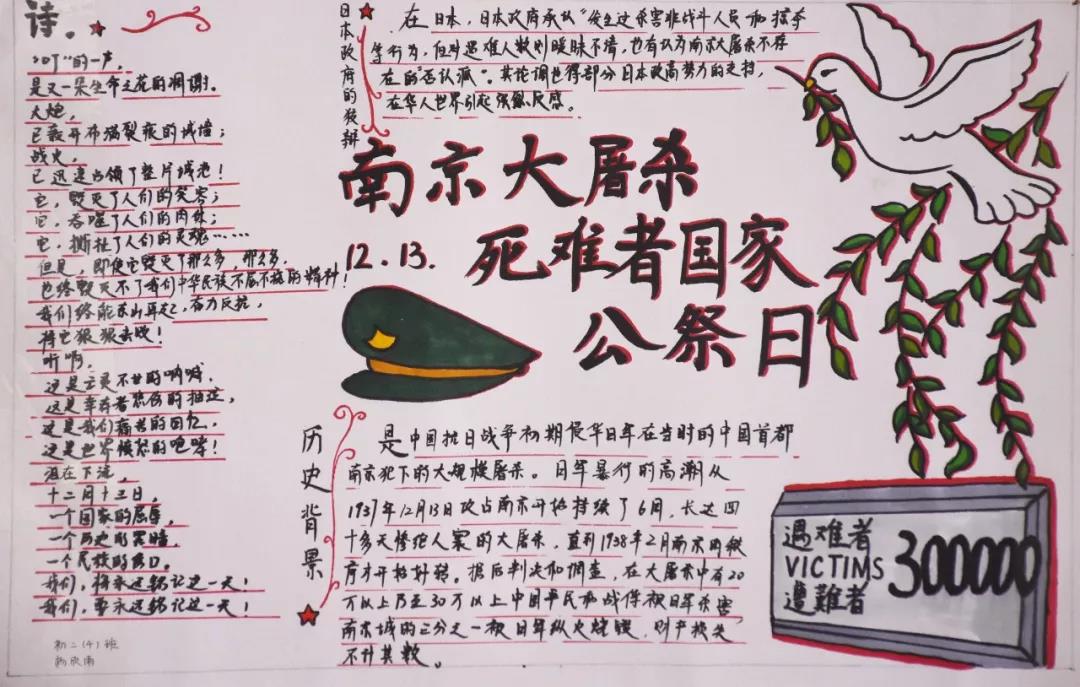 诗.
"叮"的一声,
是又一朵生命之花的凋谢。
大炮,
已轰开布满裂痕的城墙;
战火,
已迅速占领了整片城池!
它,毁灭了人们的笑容;
它,吞噬了人们的肉体;
它,撕扯了人们的灵魂……
但是,即使它毁灭了那么多,那么多,
也终毁灭不了我们中华民族不屈不挠的精神!
我们终能东山再起,奋力反抗,
将它狠狠击败!
听啊,
这是亡灵不甘的呐喊,
这是幸存者悲伤的抽泣,
这是我们痛苦的回忆,
这是世界愤怒的咆哮!
泪在下流,
十二月十三日,
一个国家的屈辱,
一个历史的黑暗,
一个民族的伤口。
我们,将永远铭记这一天!
我们,要永远铭记这一天!
初二(4)班
日本政府的狡辩
在日本,日本政府承认"发生过杀害非战斗人员和掠夺
等行为,但对遇难人数则暧昧不清,也有认为南京大屠杀不存
在的"否认派"。其论调也得部分日本政商势力的支持,
在华人世界引起强烈反感。
南京大屠杀
12.13.
死难者国家
公祭日
历史背景
是中国抗日战争初期侵华日军在当时的中国首都
南京犯下的大规模屠杀。日军暴行的高潮从
1937年12月13日攻占南京开始持续了6周,长达四
十多天惨绝人寰的大屠杀,直到1938年2月南京的秩
序才开始好转。据后判决和调查,在大屠杀中有20
万以上乃至30万以上中国平民和战俘被日军杀害
南京城的三分之一被日军纵火烧毁,财产损失
不计其数。
遇难者
VICTIMS
遭難者
300000